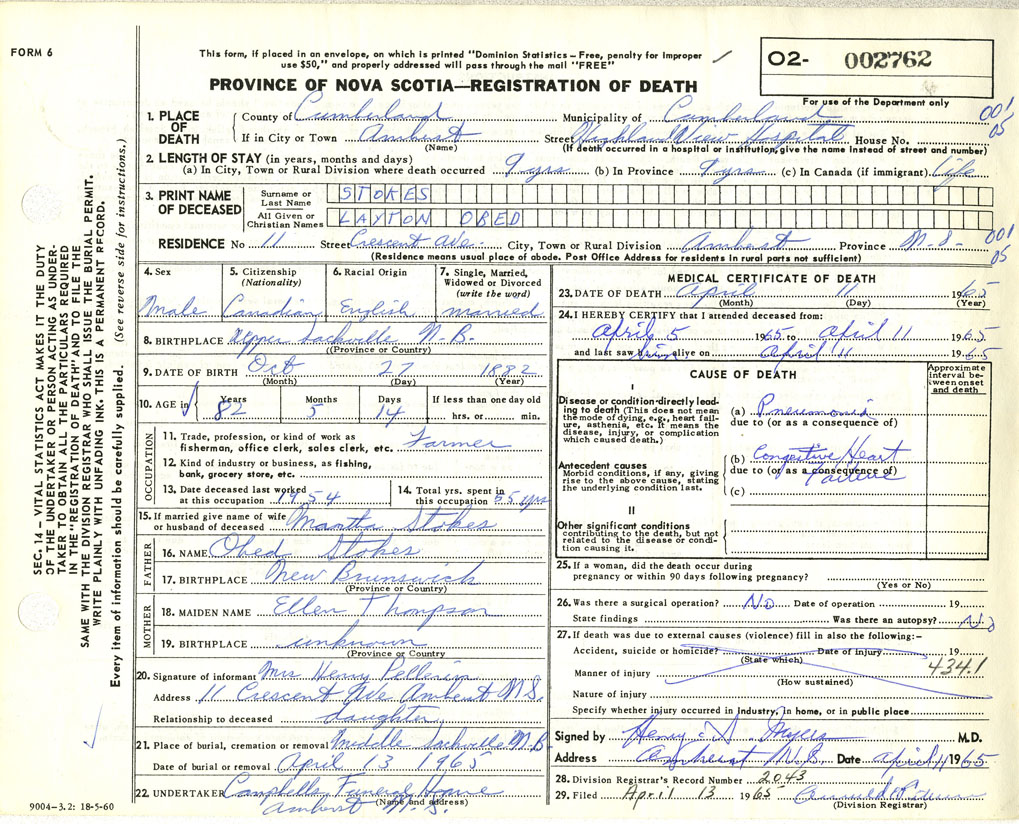 FORM 6
This form, if placed in an envelope, on which is printed "Dominion Statistics – Free, penalty for improper
use $50," and properly addressed will pass through the mail "FREE"
02- 002762
PROVINCE OF NOVA SCOTIA—REGISTRATION OF DEATH
For use of the Department only
1. PLACE OF DEATH
County of Cumberland Municipality of Cumberland 001
If in City or Town Amherst Street Highland View Hospital House No. 05
(Name) (If death occurred in a hospital or institution, give the name instead of street and number)
2. LENGTH OF STAY (in years, months and days)
(a) In City, Town or Rural Division where death occurred 9 yrs (b) In Province 9 yrs (c) In Canada (if immigrant) Life
3. PRINT NAME OF DECEASED
Surname or Last Name STOKES
All Given or Christian Names LAYTON OBED
RESIDENCE No 11 Street Crescent Ave. City, Town or Rural Division Amherst Province N.S. 001
05
(Residence means usual place of abode. Post Office Address for residents in rural parts not sufficient)
4. Sex 5. Citizenship (Nationality) 6. Racial Origin 7. Single, Married, Widowed or Divorced (write the word)
Male Canadian English married
8. BIRTHPLACE Upper Sackville N.B.
(Province or Country)
9. DATE OF BIRTH Oct 27 1882
(Month) (Day) (Year)
10. AGE in Years Months Days If less than one day old
82 5 14 hrs. or min.
OCCUPATION
11. Trade, profession, or kind of work as
fisherman, office clerk, sales clerk, etc. Farmer
12. Kind of industry or business, as fishing,
bank, grocery store, etc.
13. Date deceased last worked at this occupation 1954 14. Total yrs. spent in this occupation 65 yrs
15. If married give name of wife
or husband of deceased Martha Stokes
FATHER
16. NAME Obed Stokes
17. BIRTHPLACE New Brunswick
(Province or Country)
MOTHER
18. MAIDEN NAME Ellen Thompson
19. BIRTHPLACE unknown
(Province or Country)
20. Signature of informant Mrs Henry Pellerin
Address 11 Crescent Ave Amherst N.S.
Relationship to deceased daughter
21. Place of burial, cremation or removal Middle Sackville N.B
Date of burial or removal April 13 1965
22. UNDERTAKER Campbells Funeral Home
(Name and address)
Amherst N.S.
MEDICAL CERTIFICATE OF DEATH
23. DATE OF DEATH April 11 1965
(Month) (Day) (Year)
24. I HEREBY CERTIFY that I attended deceased from:
April 5 1965 to April 11 1965
and last saw him alive on April 11 1965
CAUSE OF DEATH
Approximate interval between onset and death
I
Disease or condition directly leading to death (This does not mean the mode of dying, e.g., heart failure, asthenia, etc. It means the disease, injury, or complication which caused death.)
(a) Pneumonia
due to (or as a consequence of)
Antecedent causes
Morbid conditions, if any, giving rise to the above cause, stating the underlying condition last.
(b) Congestive Heart
due to (or as a consequence of) Failure
(c)
II
Other significant conditions
contributing to the death, but not
related to the disease or condi-
tion causing it.
25. If a woman, did the death occur during
pregnancy or within 90 days following pregnancy?
(Yes or No)
26. Was there a surgical operation? No Date of operation 19
State findings Was there an autopsy? No
27. If death was due to external causes (violence) fill in also the following:–
Accident, suicide or homicide? Date of injury 19
(State which) 4341
Manner of injury
(How sustained)
Nature of injury
Specify whether injury occurred in industry, in home, or in public place
Signed by Henry S. Myers M.D.
Address Amherst N.S. Date April 11 1965
28. Division Registrar's Record Number 2043
29. Filed April 13 1965
(Division Registrar)
SEC. 14 – VITAL STATISTICS ACT MAKES IT THE DUTY
OF THE UNDERTAKER OR PERSON ACTING AS UNDER-
TAKER TO OBTAIN ALL THE PARTICULARS REQUIRED
IN THE "REGISTRATION OF DEATH" AND TO FILE THE
SAME WITH THE DIVISION REGISTRAR WHO SHALL ISSUE THE BURIAL PERMIT.
WRITE PLAINLY WITH UNFADING INK. THIS IS A PERMANENT RECORD.
Every item of information should be carefully supplied. (See reverse side for instructions.)
9004–3.2: 18-5-60